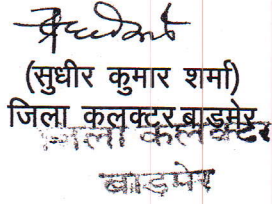 (सुधीर कुमार शर्मा)
जिला कलक्टर बाड़मेर
जिला कलक्टर
बाड़मेर